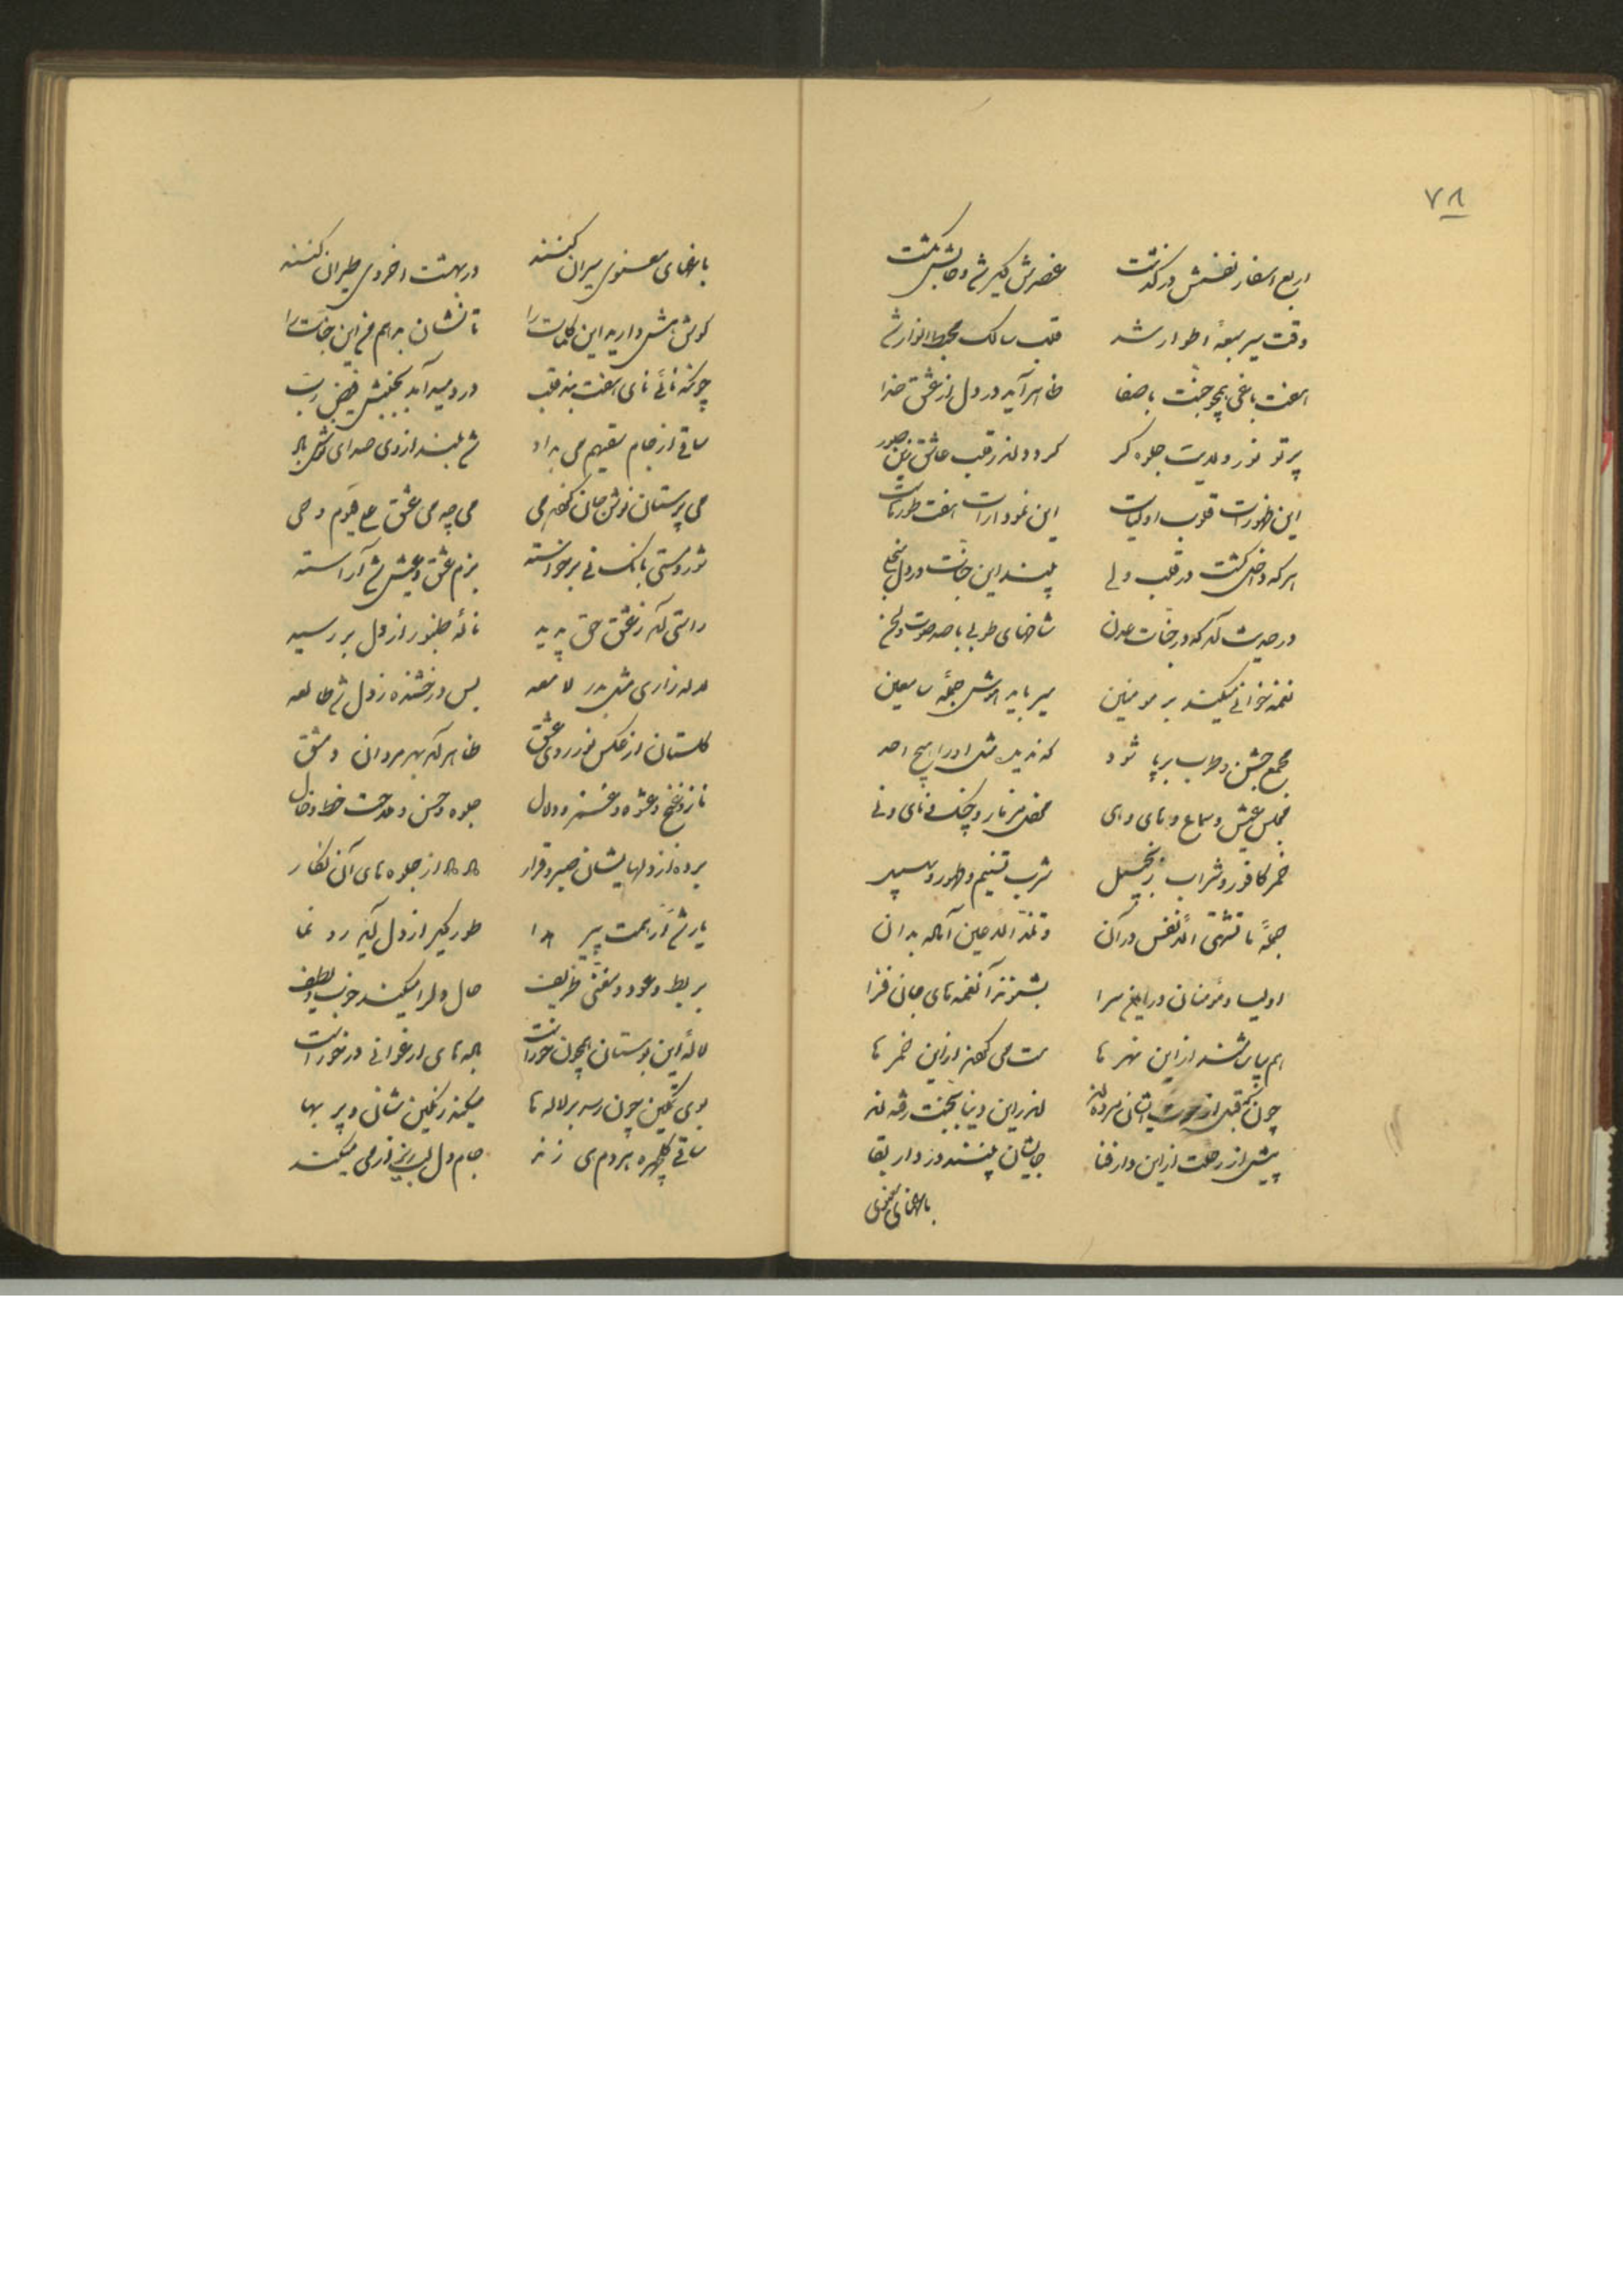 ۷۸
اربع اسفار نفسش درگذشت عنصرش
وقت سیر سبعهٔ اطوار شد قلب سالک مهبط انوار شد
هفت باغی همچو جنت با صفا ظاهر آید در دل از عشق خدا
پرتو نور ولایت جلوه گر گردد اندر قلب عاشق زین صور
این ظهورات قلوب اولیاست این نمودارات هفت طور ماست
هر که داخل گشت در قلب ولی بیند این جنات در دل منجلی
در حدیث آمد که در جنات عدن شاخهای طوبی با صد صوت و لحن
نغمه خوانی میکند بر مومنین میرباید هوش جمله سامعین
مجمع جشن و طرب برپا شود که ندیده مثل او را هیچ احد
مجلس عیش و سماع و های و هی محفل مزمار و چنگ و نای و نی
خمر کافور و شراب زنجبیل شرب تسنیم و طهور و سلسبیل
جملهٔ ما تشتهی الانفس در آن و تلذ الاعین آماده بدان
اولیا و مومنان در این سرا بشنوند آن نغمه های جان فزا
هم بیاشامند از این نهر ها مست می گردند از این خمر ها
چون که قبل از موت ایشان مرده اند اندر این دنیا بجنت رفته اند
پیش از رحلت از این دار فنا جایشان بینند در دار بقا
باغهای معنوی
باغهای معنوی سیران کنند در بهشت اخروی طیران کنند
گوش هش دارید این کلمات را تا نشان بدهم من این جنات را
چونکه نائی نای هفت بند قلب دردمید آمد بجنبش فیض رب
ساقی از جام سقیهم می بداد شد بلند از وی صدای نوش باد
می پرستان نوش جان کردند می می چه می عشق علی قیوم و حی
شور و مستی بانگ نی برخواسته بزم عشق و عیش شد آراسته
راستی آمد ز عشق حق پدید نالهٔ طنبور از دل بر رسید
لاله زاری مثل بدر لامعه بس درخشنده ز دل شد طالعه
گلستان از عکس نور روی عشق ظاهر آمد بهر مردان دمشق
ناز و غنج و عشوه و غمزه و دلال جلوه و حسن و ملاحت خط و خال
برده از دلهایشان صبر و قرار از جلوه های آن نگار
یار شد از همت پیر هدا طور دیگر از دل آمد رو نما
بربط و عود و مغنی ظریف حال دلرا میکند خوب و لطیف
لالهٔ این بوستان همچون خور است باله های ارغوانی در خور است
بوی تمکین چون رسد بر لاله ها میکند رنگین نشان و پر بها
ساقی گلچهره هر دم می زند جام دل لبریز از می میکند